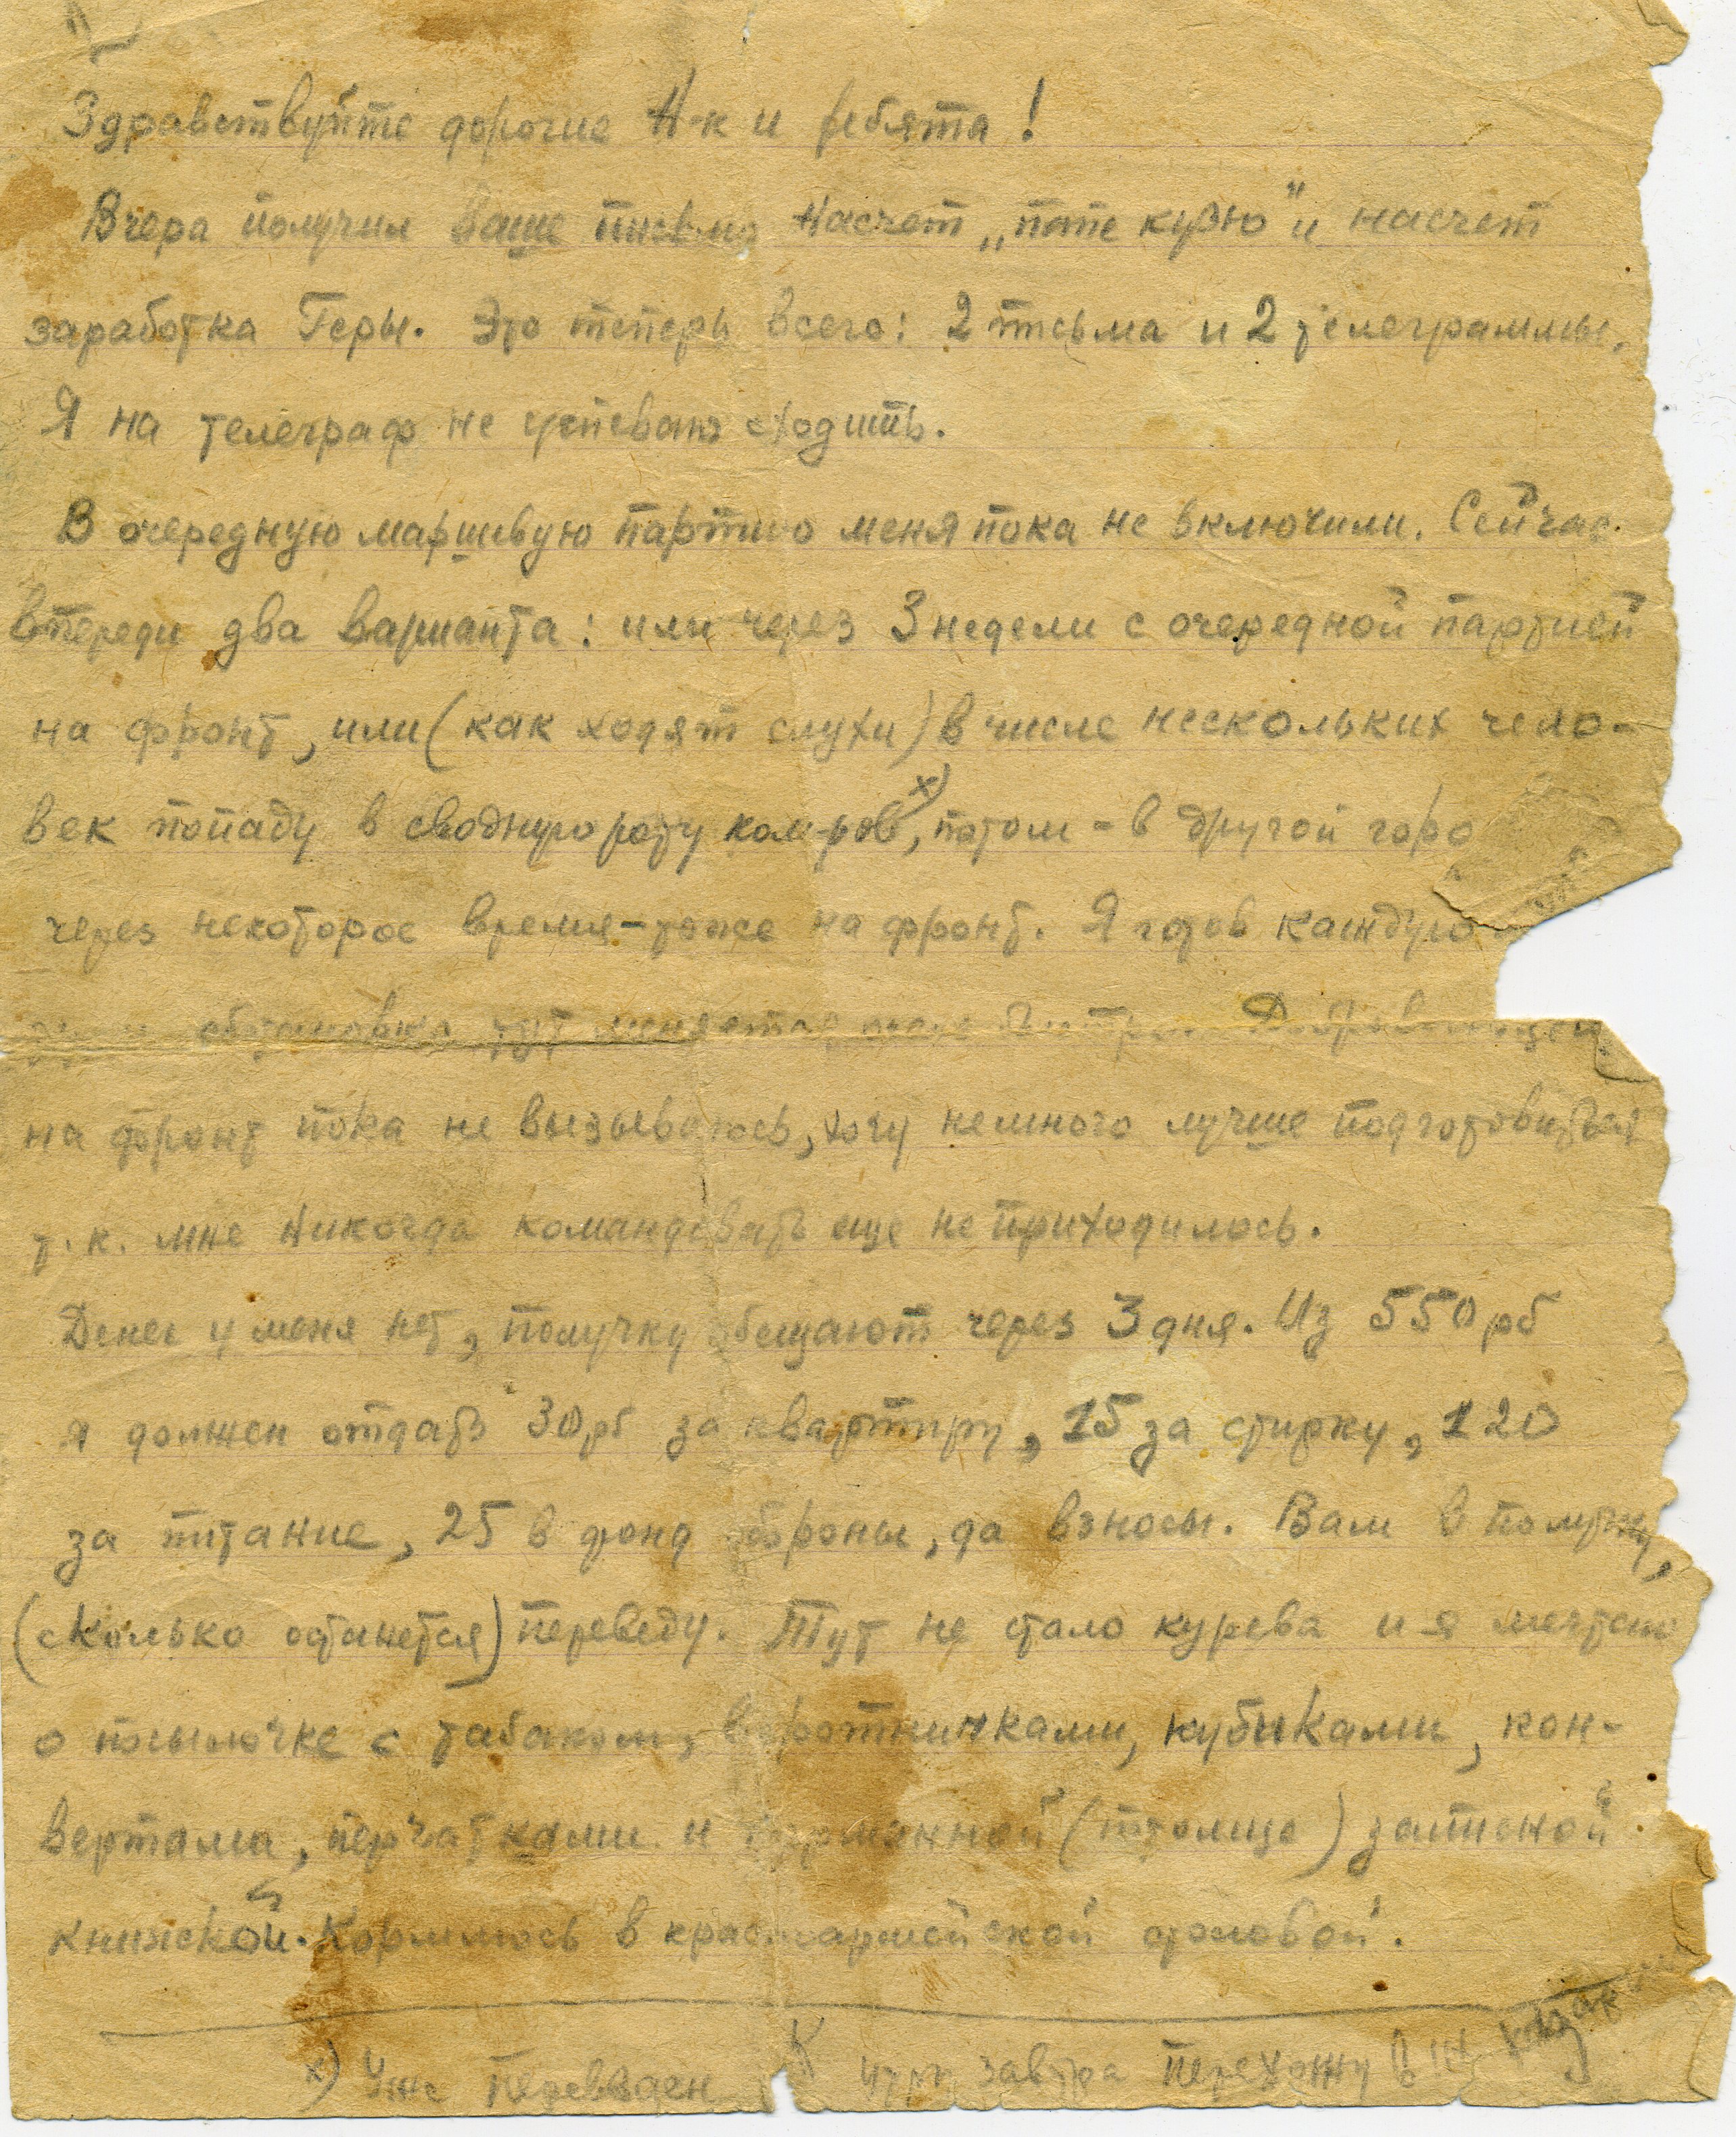 Здравствуйте дорогие Н-к и ребята!
Вчера получил ваше письмо насчет „пате кузю“ и насчет
заработка Геры. Это теперь всего: 2 письма и 2 телеграммы.
Я на телеграф не успеваю сходить.
В очередную маршевую партию меня пока не включили. Сейчас
впереди два варианта: или через 3 недели с очередной партией
на фронт, или (как ходят слухи) в числе нескольких чело-
век попаду в сводную роту ком-ров х), потом - в другой горо
через некоторое время - тоже на фронт. Я готов каждую
обстановка тут меняется очень быстро. Добровольцем
на фронт пока не вызываюсь, хочу немного лучше подготовиться
т.к. мне никогда командовать еще не приходилось.
Денег у меня нет, получку обещают через 3 дня. Из 550 рб
я должен отдать 30 рб за квартиру, 15 за стирку, 120
за питание, 25 в фонд обороны, да взносы. Вам в получку,
(сколько останется) переведу. Тут не стало курева и я мечтаю
о посылочке с табаком, воротничками, кубиками, кон-
вертами, перчатками и карманной (потолще) записной
книжкой. Кормлюсь в красноармейской столовой.
х) Уже переведен завтра перехожу в